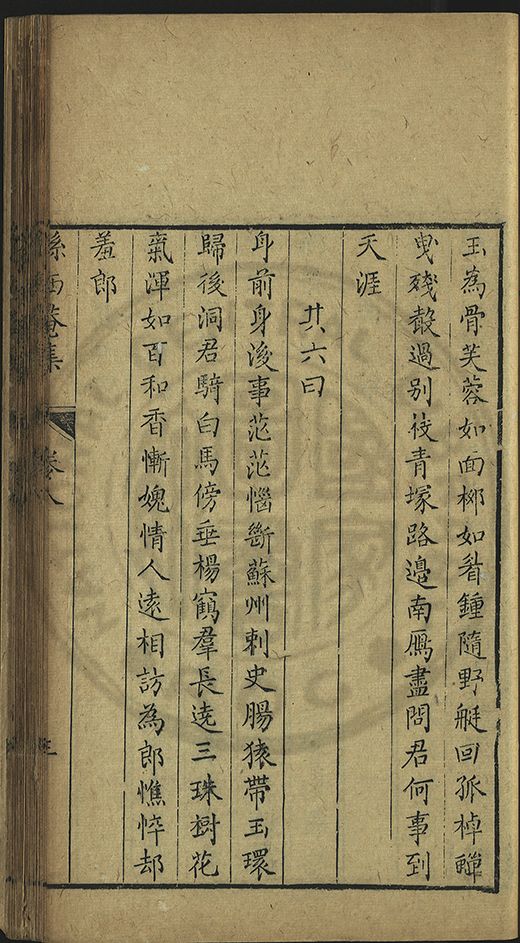 玉為骨芙蓉如面柳如眉鍾隨野艇回孤棹蟬
曳殘聲過別枝青塚路邊南鴈盡問君何事到
天涯
其六曰
身前身後事茫茫惱斷蘇州刺史腸猿帶玉環
歸後洞君騎白馬傍垂楊鶴羣長遶三珠樹花
氣渾如百和香慚媿情人遠相訪為郎憔悴却
羞郎
孫西菴集
卷八